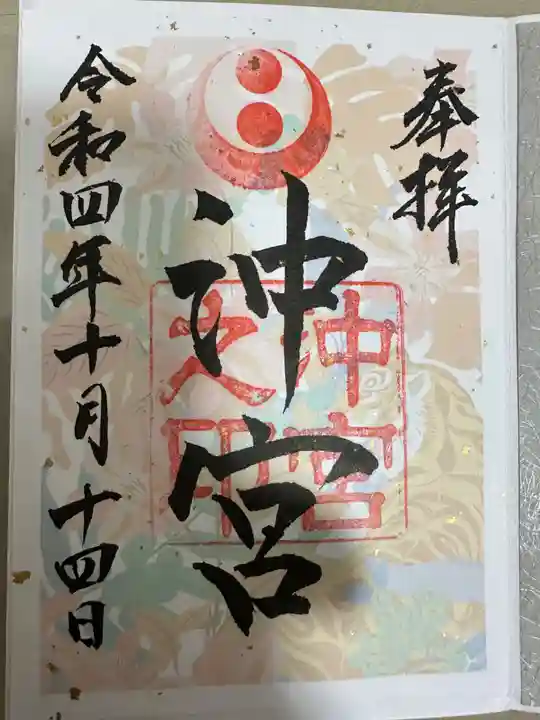 奉拝
沖宮
沖宮
之印
令和四年十月十四日